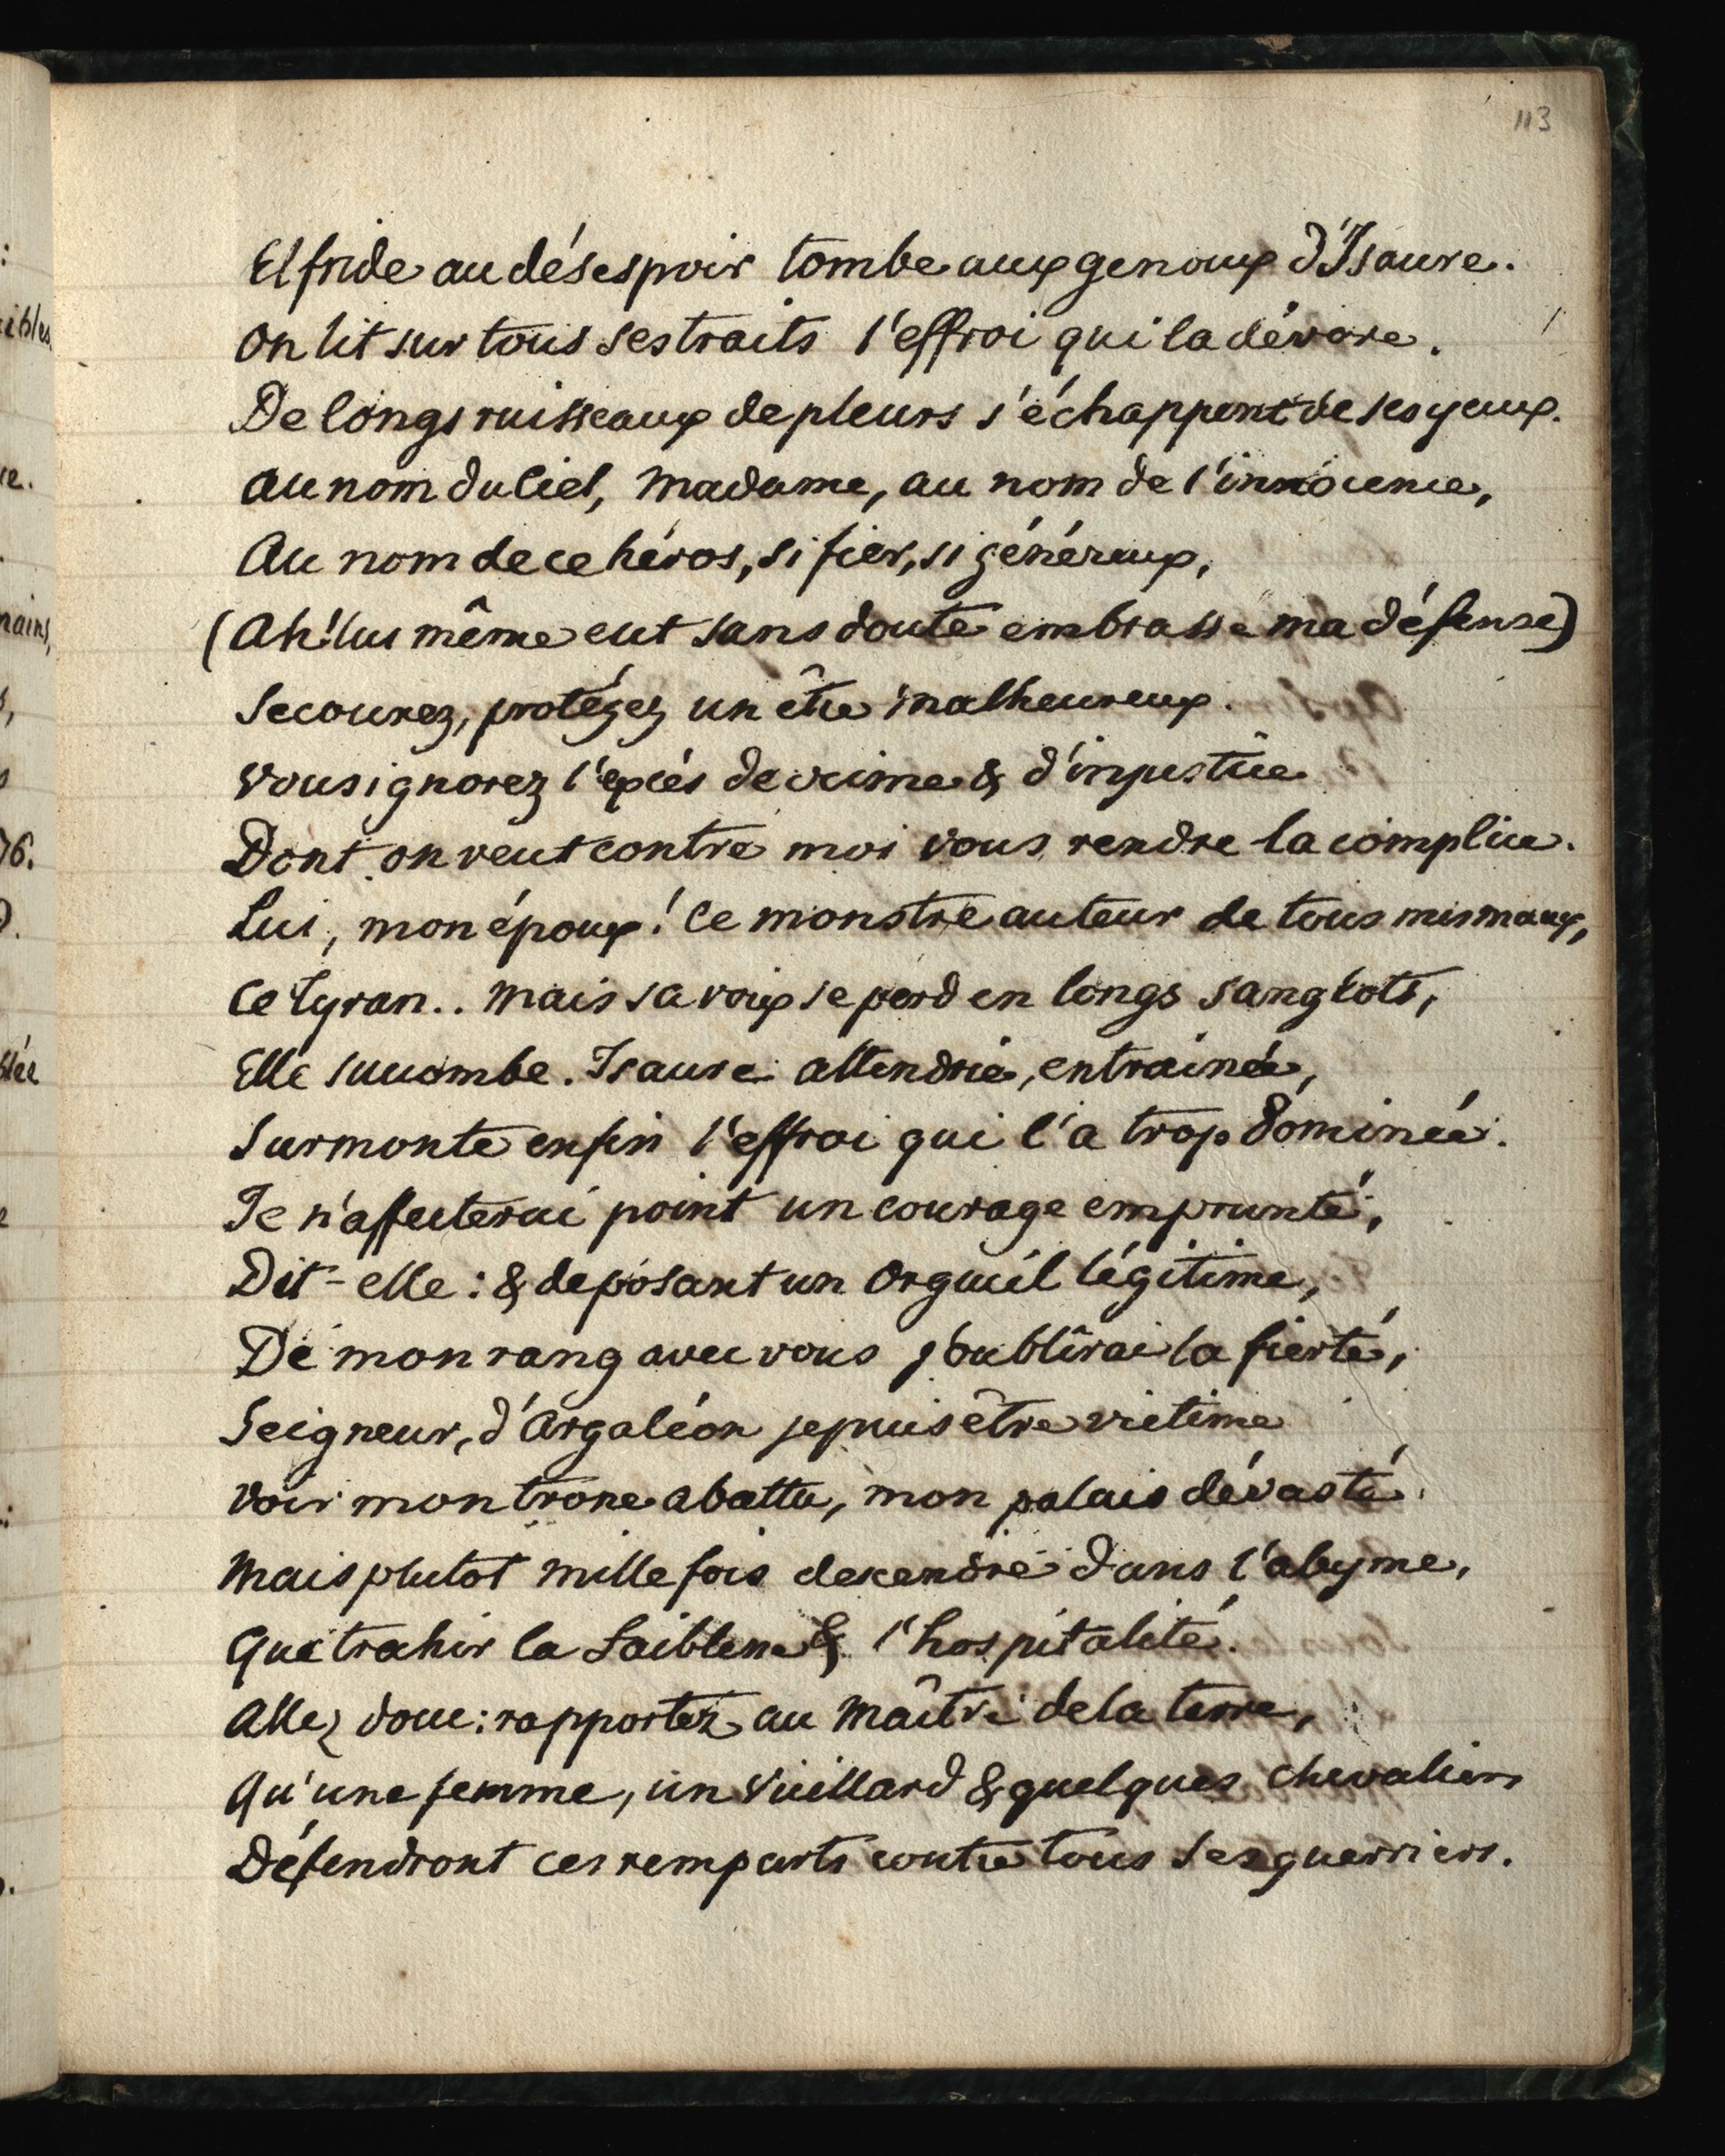 113
Elfride au désespoir tombe aux genoux d'Isaure.
On lit sur tous ses traits l'effroi qui la dévore.
De longs ruisseaux de pleurs s'échappent de ses yeux.
Au nom du Ciel, Madame, au nom de l'innocence,
Au nom de ce héros, si fier, si généreux,
(Ah! lui même eut sans doute embrassé ma défense)
Secourez, protégez un être malheureux.
Vous ignorez l'excés de crime & d'injustice
Dont on veut contre moi vous rendre la complice.
Lui, mon époux! Ce monstre auteur de tous mes maux,
Ce tyran.. Mais sa voix se perd en longs sanglots,
Elle succombe. Isaure attendrie, entrainée,
Surmonte enfin l'effroi qui l'a trop dominée.
Je n'affecterai point un courage emprunté,
Dit-elle: & déposant un orgueil légitime,
De mon rang avec vous j'oublîrai la fierté,
Seigneur, d'Argaléon je puis être victime
Voir mon trone abattu, mon palais dévasté.
Mais plutot mille fois descendre dans l'abyme,
Que trahir la faiblesse & l'hospitalité.
Allez donc: rapportez au Maître de la terre,
Qu'une femme, un Vieillard & quelques chevaliers
Défendront ces remparts contre tous ses guerriers.